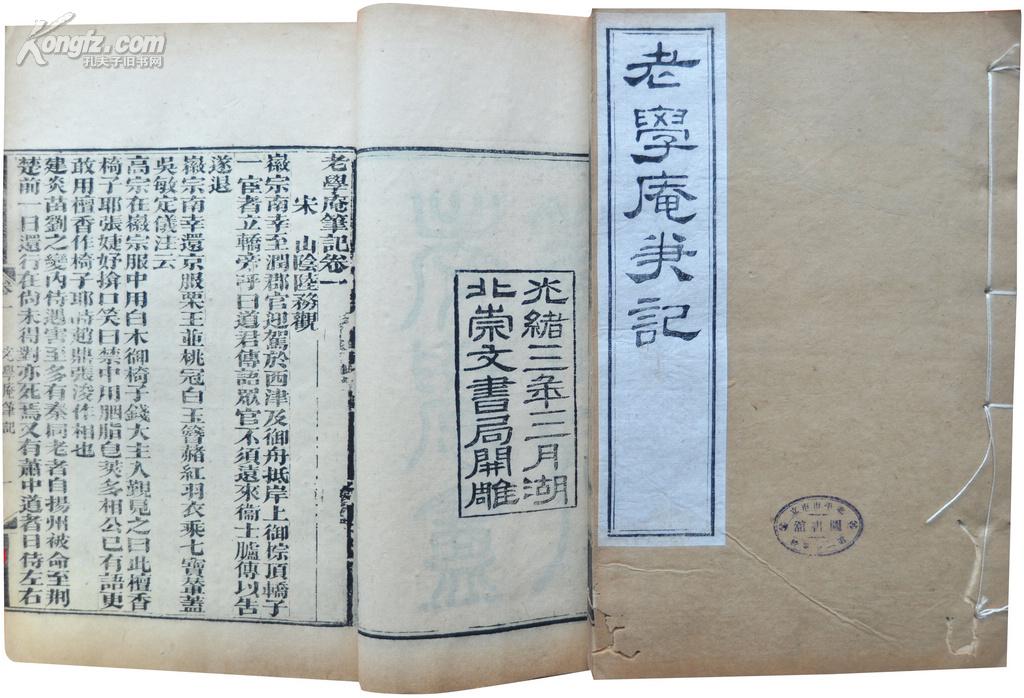 老學庵筆記
光緒三年三月湖
北崇文書局開雕
老學庵筆記卷一
宋 山陰陸務觀
徽宗南幸至潤郡官迎駕於西津及御舟抵岸上御棕頂轎子
一宦者立轎旁呼曰道君傳語眾官不須遠來衞士臚傳以告
遂退
徽宗南幸還京服栗玉並桃冠白玉簪赭紅羽衣乘七寶輦蓋
吳敏定儀注云
高宗在徽宗服中用白木御椅子錢大主入覲見之曰此檀香
椅子耶張婕妤掩口笑曰禁中用胭脂皂莢多相公已有語更
敢用檀香作椅子耶時趙鼎張浚作相也
建炎苗劉之變內侍遇害至多有秦同老者自揚州被命至荆
楚前一日還行在尚未得對亦死焉又有蕭中道者日侍左右
老學庵筆記
一
Kongfz.com
孔夫子旧书网
圖書館